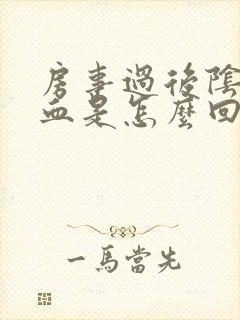 房事過後陰
血是怎麼回
一馬當先